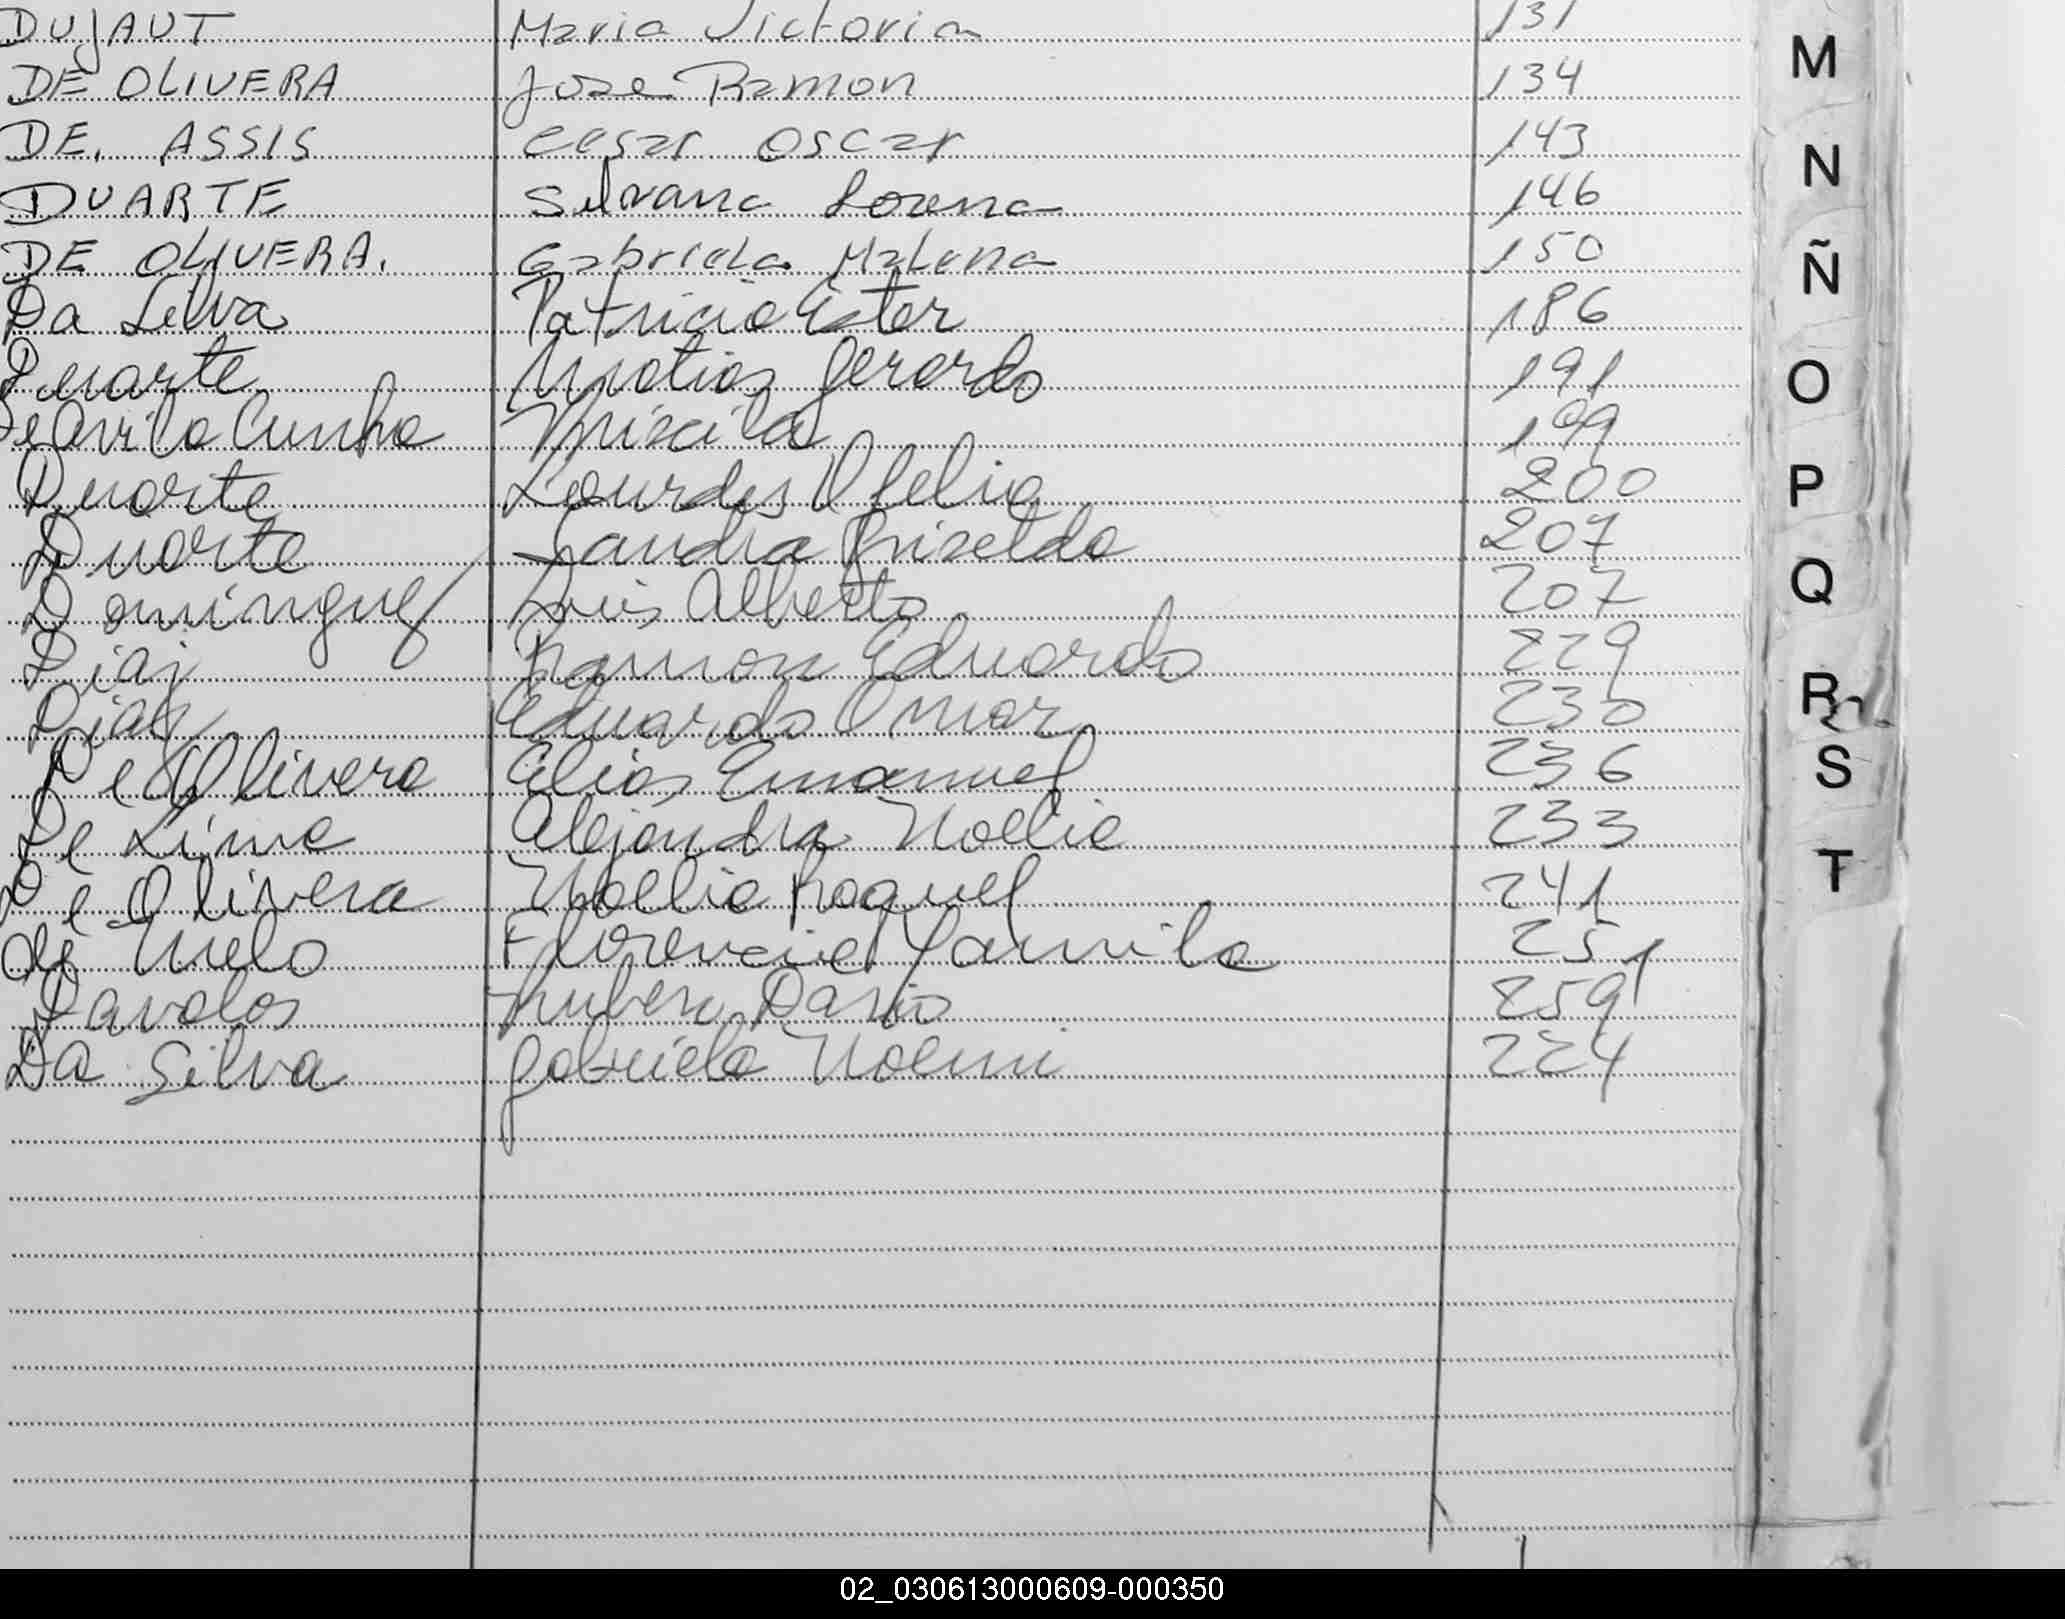 DUJAUT Maria Victoria 131
DE OLIVERA Jose Ramon 134
DE. ASSIS Cesar Oscar 143
DUARTE Silvana Lorena 146
DE OLIVERA. Gabriela Malena 150
Da Silva Patricia Ester 186
Duarte Matias Gerardo 191
De Avila Cunha Priscila 199
Duarte Lourdes Ofelia 200
Duarte Sandra Griselda 207
Dominguez Luis Alberto 207
Diaz Ramon Eduardo 229
Diaz Eduardo Omar 230
De Olivera Elias Emanuel 236
De Lima Alejandra Noelia 233
De Olivera Noelia Raquel 241
de Melo Florencia Yamila 251
Davalos Ruben Dario 259
Da Silva Gabriela Noemi 224
M
N
Ñ
O
P
Q
R
S
T
02_030613000609-000350